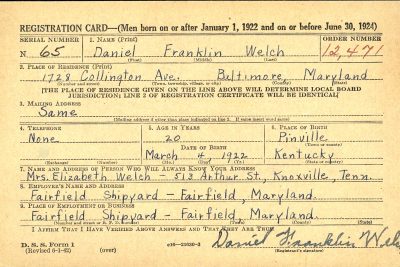 REGISTRATION CARD—(Men born on or after January 1, 1922 and on or before June 30, 1924)
SERIAL NUMBER 1. NAME (Print) ORDER NUMBER
N 65 Daniel Franklin Welch 12,471
(First) (Middle) (Last)
2. PLACE OF RESIDENCE (Print)
1728 Collington Ave. Baltimore, Maryland
(Number and street) (Town, township, village, or city) (County) (State)
[THE PLACE OF RESIDENCE GIVEN ON THE LINE ABOVE WILL DETERMINE LOCAL BOARD
JURISDICTION; LINE 2 OF REGISTRATION CERTIFICATE WILL BE IDENTICAL]
3. MAILING ADDRESS
Same
[Mailing address if other than place indicated on line 2. If same insert word same]
4. TELEPHONE 5. AGE IN YEARS 6. PLACE OF BIRTH
None 20 Pinville
DATE OF BIRTH (Town or county)
March 4, 1922 Kentucky
(Exchange) (Number) (Mo.) (Day) (Yr.) (State or country)
7. NAME AND ADDRESS OF PERSON WHO WILL ALWAYS KNOW YOUR ADDRESS
Mrs. Elizabeth Welch - 513 Arthur St., Knoxville, Tenn.
8. EMPLOYER'S NAME AND ADDRESS
Fairfield Shipyard - Fairfield, Maryland.
9. PLACE OF EMPLOYMENT OR BUSINESS
Fairfield Shipyard - Fairfield, Maryland.
(Number and street or R. F. D. number) (Town) (County) (State)
I AFFIRM THAT I HAVE VERIFIED ABOVE ANSWERS AND THAT THEY ARE TRUE.
D. S. S. Form 1
(Revised 6-1-42) (over) Daniel Franklin Wel